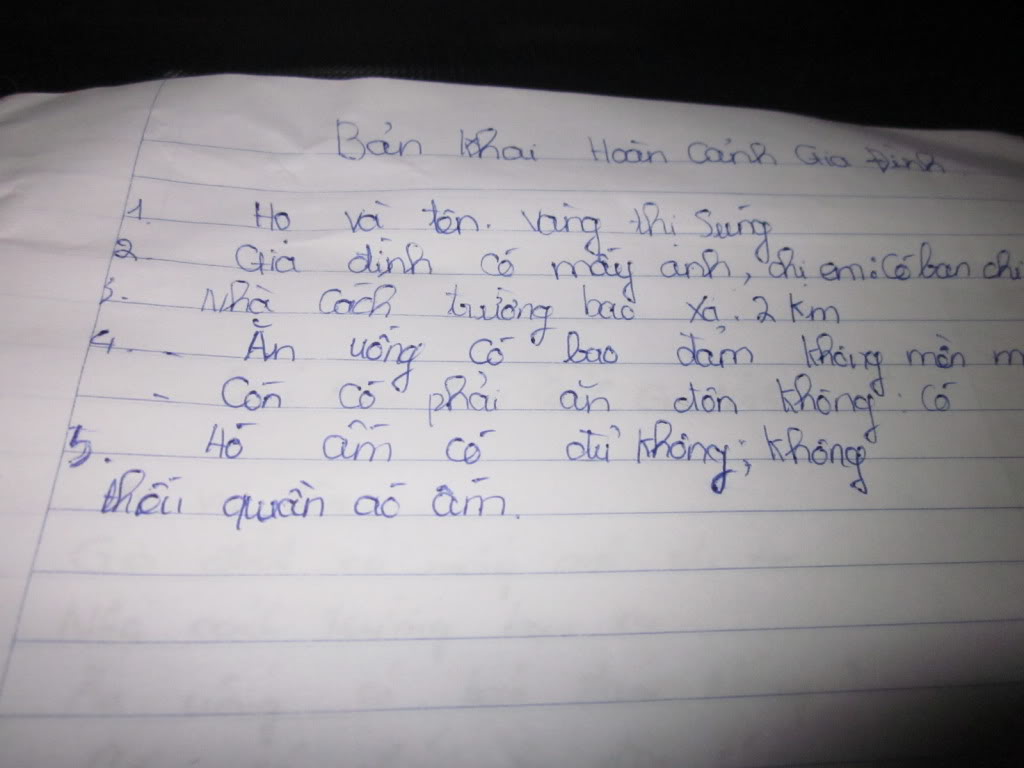 Bản khai Hoàn cảnh Gia Đình
1. Họ và tên. Vàng thị Súng
2. Gia dịnh có mấy anh, chị em: có ban chị
3. Nhà cách trường bao xa. 2 km
4. - Ăn uống có bao đảm không môn m
- Còn có phải ăn dôn không. có
5. Hố ấm có đủ không; không
thếu quần aó ấm.